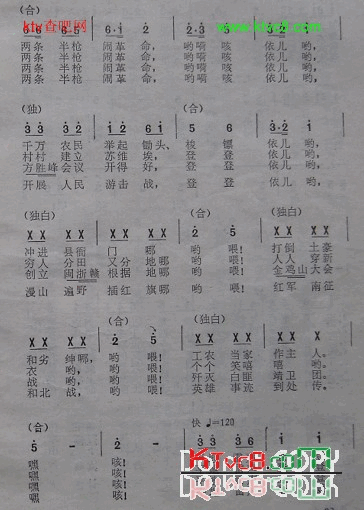 ktv查吧网
www.ktvc8.com
(合)
6 6 6·5 6·i 2 2·3 3 3 2
两条半枪闹革命，哟嗬咳依儿哟，
两条半枪闹革命，哟嗬咳依儿哟，
两条半枪闹革命，哟嗬咳依儿哟，
两条半枪闹革命，哟嗬咳依儿哟，
(独) (合)
3 3 3 3 i 2 6 i 5 6 3·2 i
千万农民举起锄头、梭镖依儿哟，
村村建立苏维埃，登登依儿哟，
方胜峰会议开得好，登登依儿哟，
开展人民游击战，登登依儿哟，
(独白) (合) (独白)
X X X X X X X X 2 5 X X X X
冲进县衙门哪哟喂！打倒土豪
穷人分田又分地哪哟喂！人人穿新
创立闽浙赣根据地哪哟喂！金鸡山大会
漫山遍野插红旗哪哟喂！红军南征
(合) (独白)
X X X X 2 5 X X X X X X X
和劣绅哪，哟喂！工农当家作主人。
衣哪，哟喂！个个笑嘻嘻。
战哪，哟喂！歼灭白匪靖卫团。
和北战，哟喂！英雄事迹到处传。
(合) 快 ♩=120
5 - 2 - 3 3 3 3 i i
嘿咳！
嘿咳！
嘿咳！
嘿咳！
KTvc8.COM